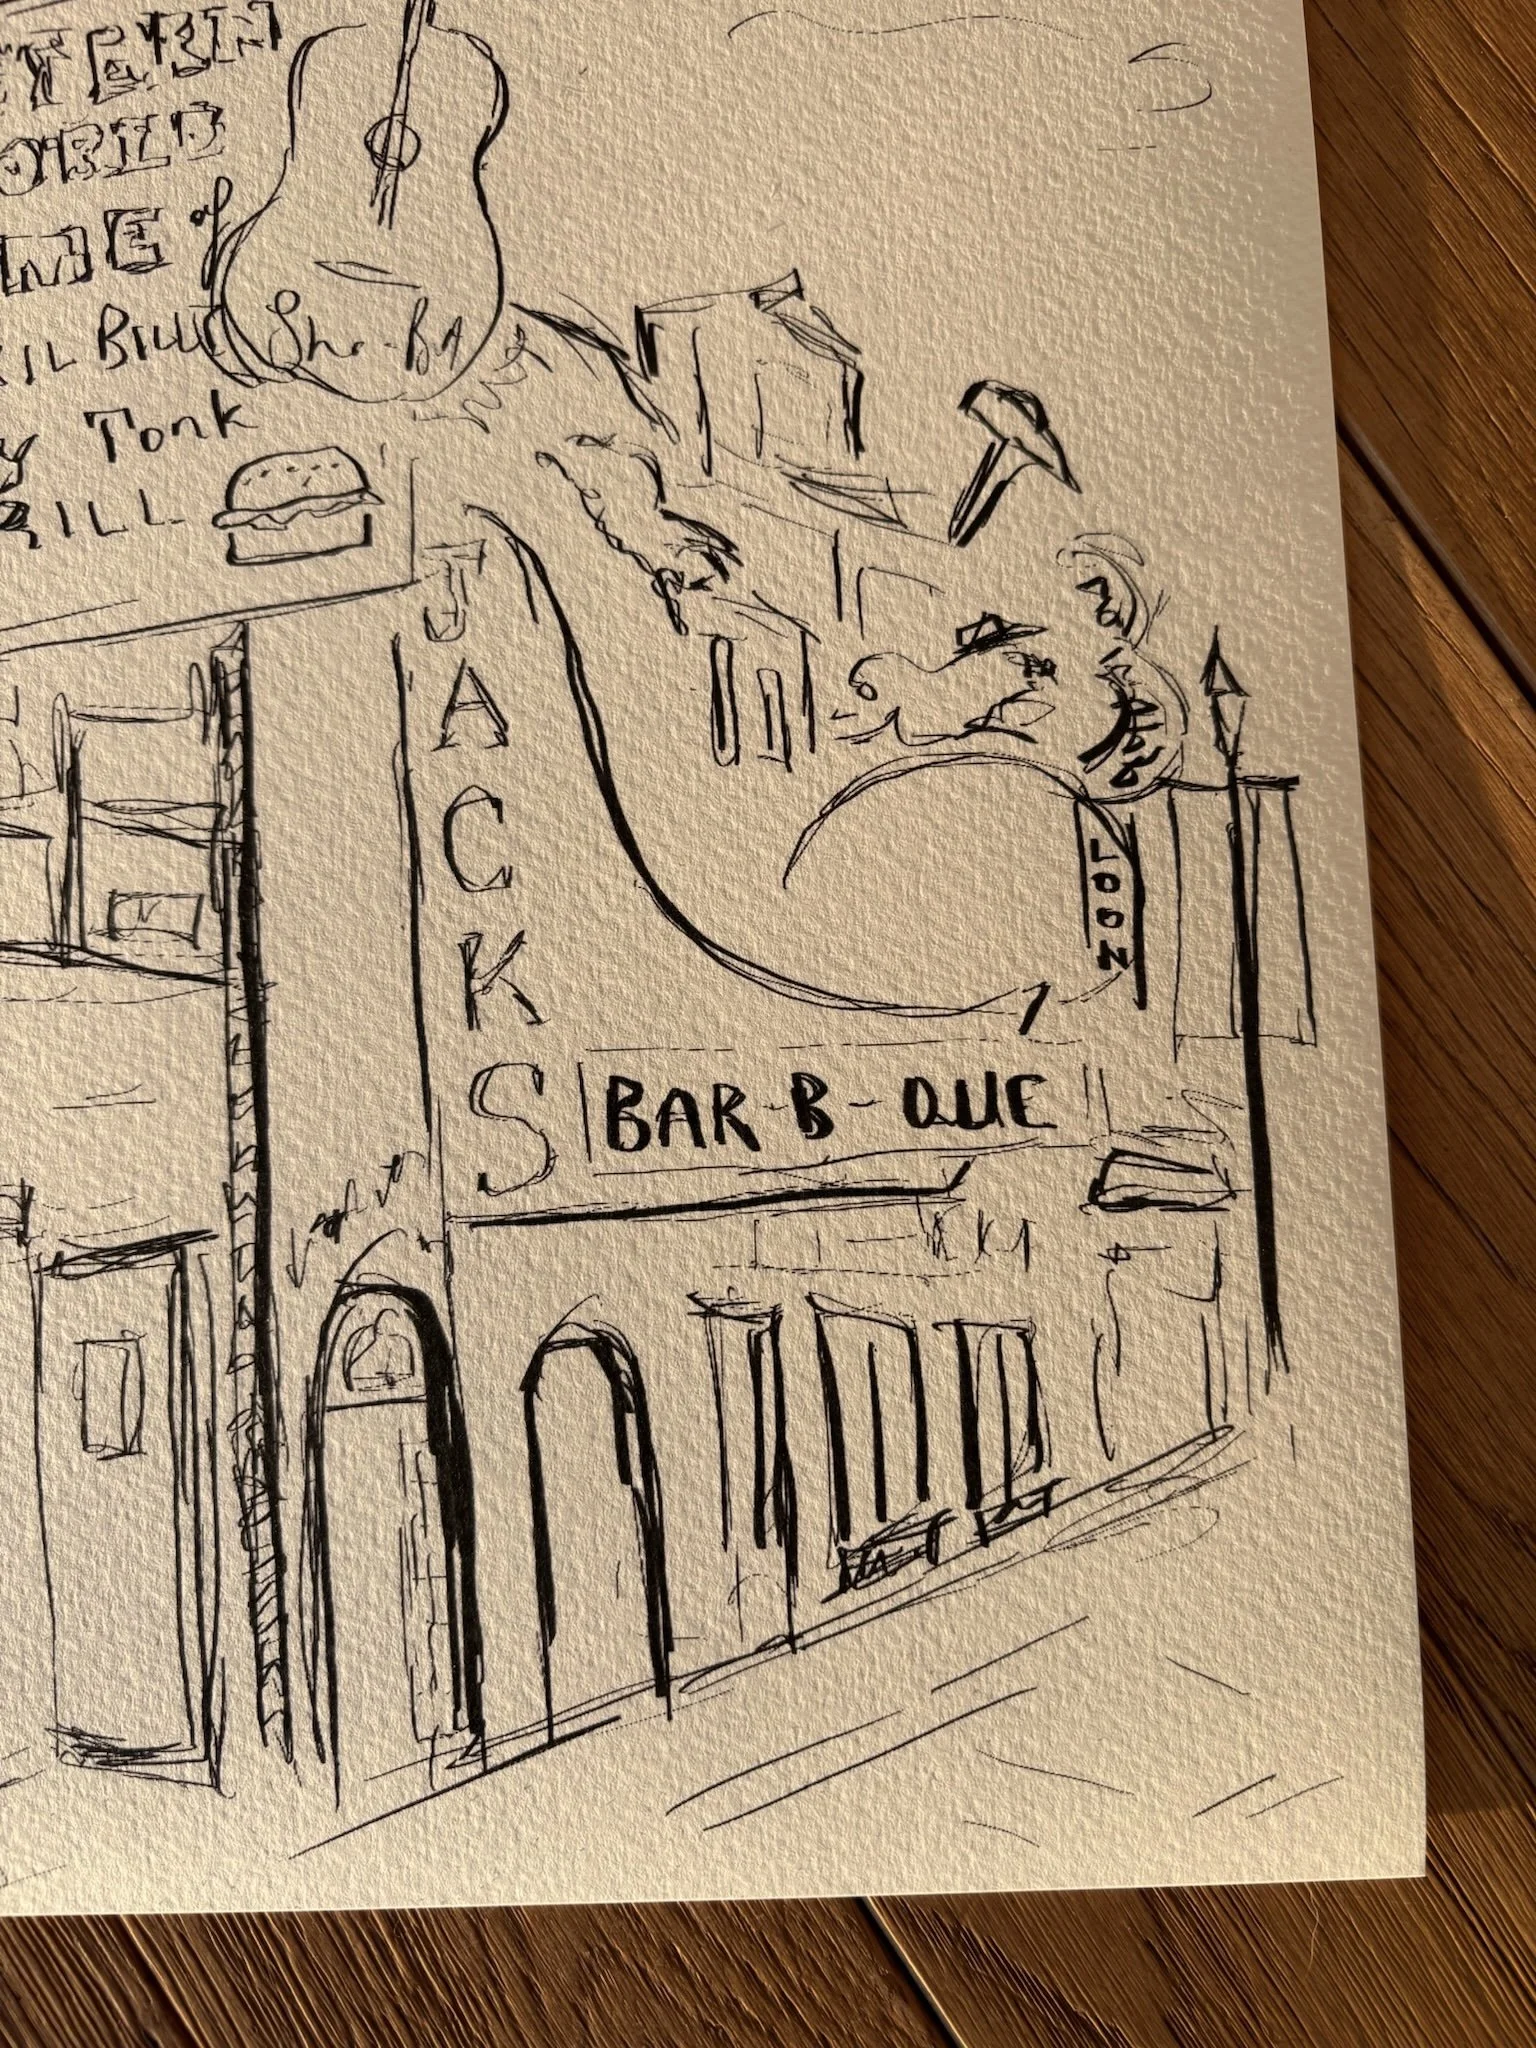 TERN
ORLD
ME of
IL BILLY
Y Tonk
RILL
She-BA
JACKS
BAR-B-QUE
LOON